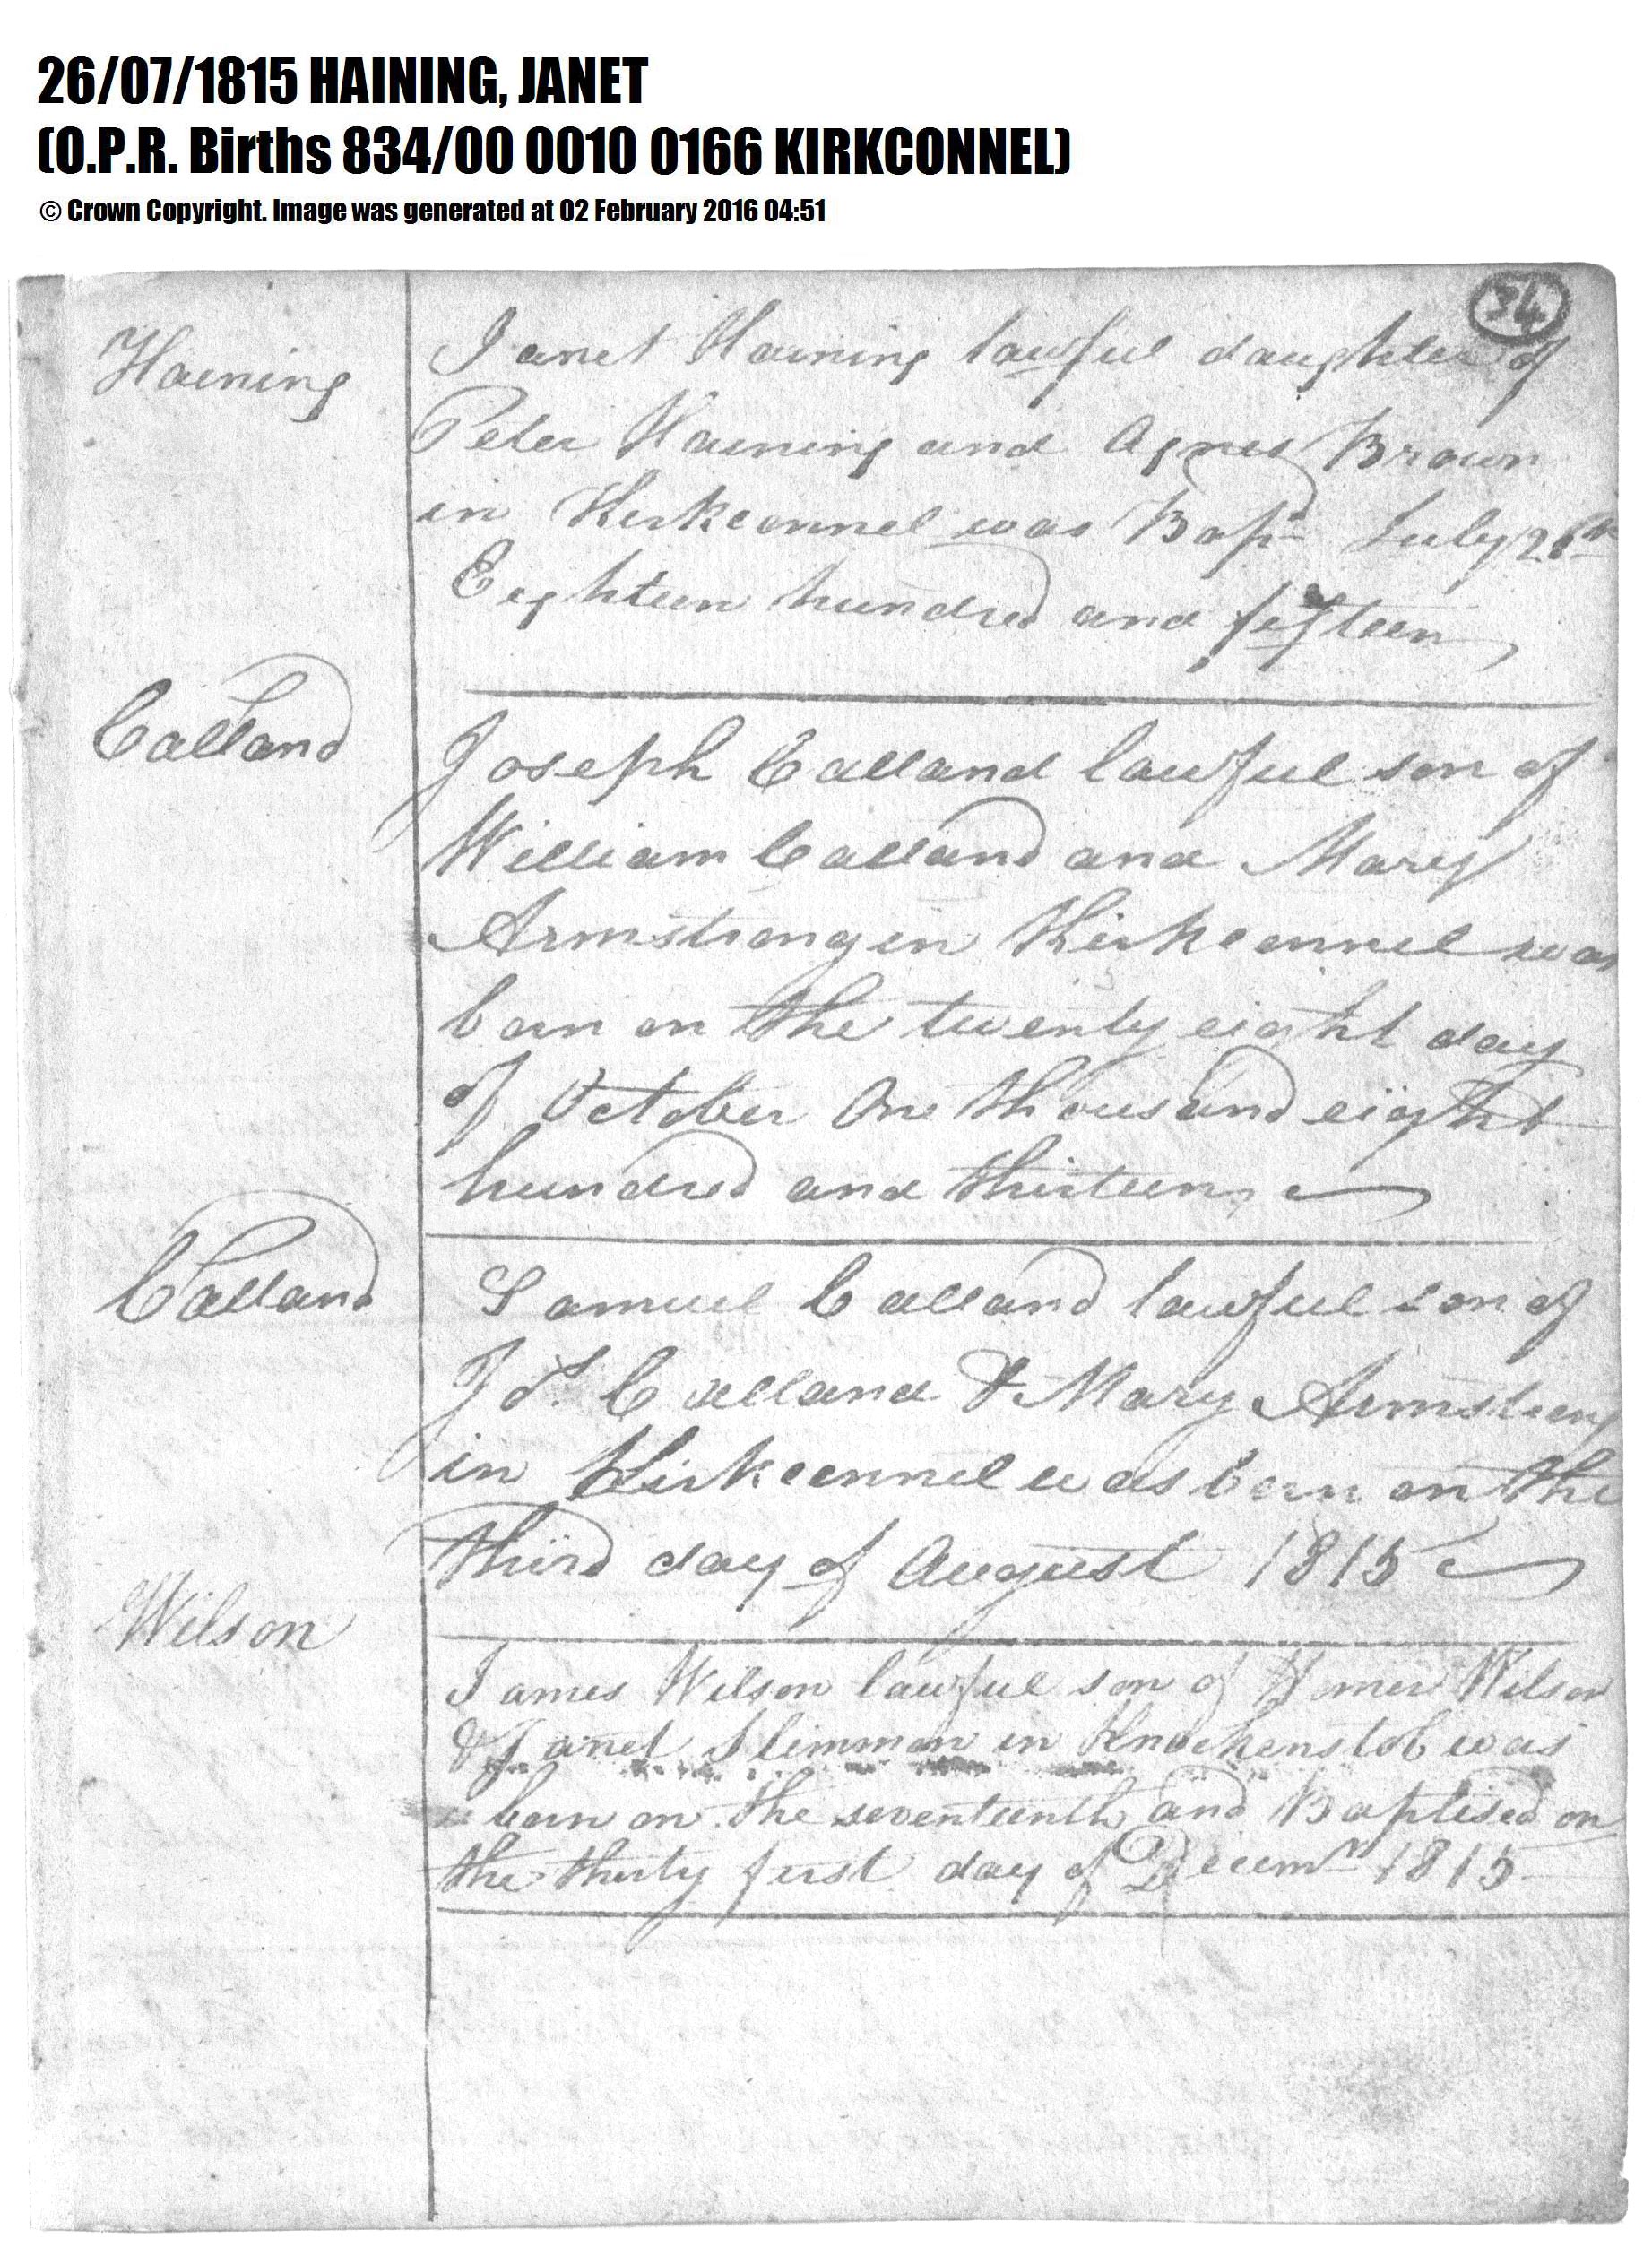 26/07/1815 HAINING, JANET
(O.P.R. Births 834/00 0010 0166 KIRKCONNEL)
© Crown Copyright. Image was generated at 02 February 2016 04:51
34
Haining
Janet Haining lawful daughter of
Peter Haining and Agnes Brown
in Kirkconnel was Bapd July 26th
Eighteen hundred and fifteen
Calland
Joseph Calland lawful son of
William Calland and Mary
Armstrong in Kirkconnel was
born on the twenty eight day
of October One thousand eight
hundred and thirteen
Calland
Samuel Calland lawful son of
Do. Calland & Mary Armstrong
in Kirkconnel was born on the
third day of August 1815
Wilson
James Wilson lawful son of Homer Wilson
& Janet Slimmon in Knockenstob was
born on the seventeenth and Baptised on
the thirty first day of Decemr 1815